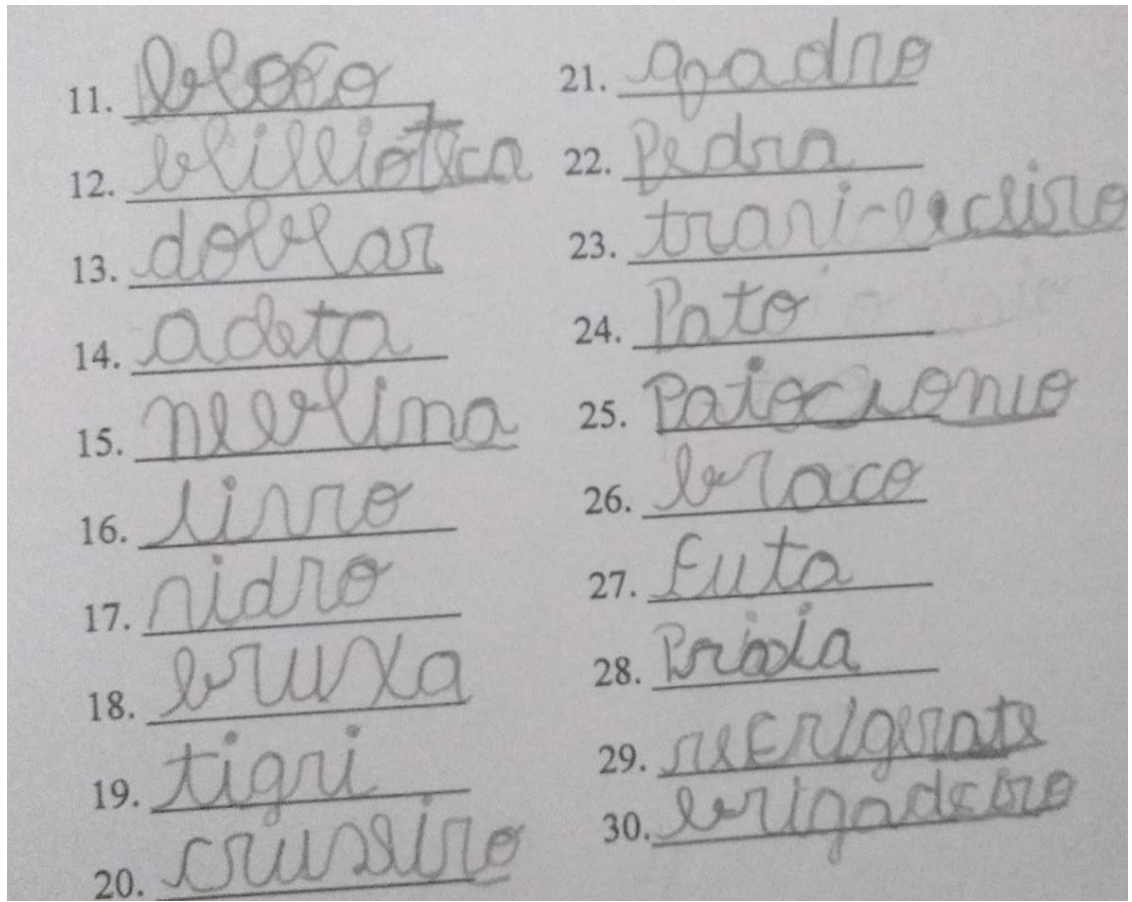 11. bloco
12. blillioteca
13. doblar
14. adeta
15. neblima
16. livro
17. vidro
18. bruxa
19. tigri
20. cruseiro
21. qadro
22. Pedra
23.
24. Pato
25.
26. braco
27. Futa
28.
29. reFrigerate
30. brigadeiro